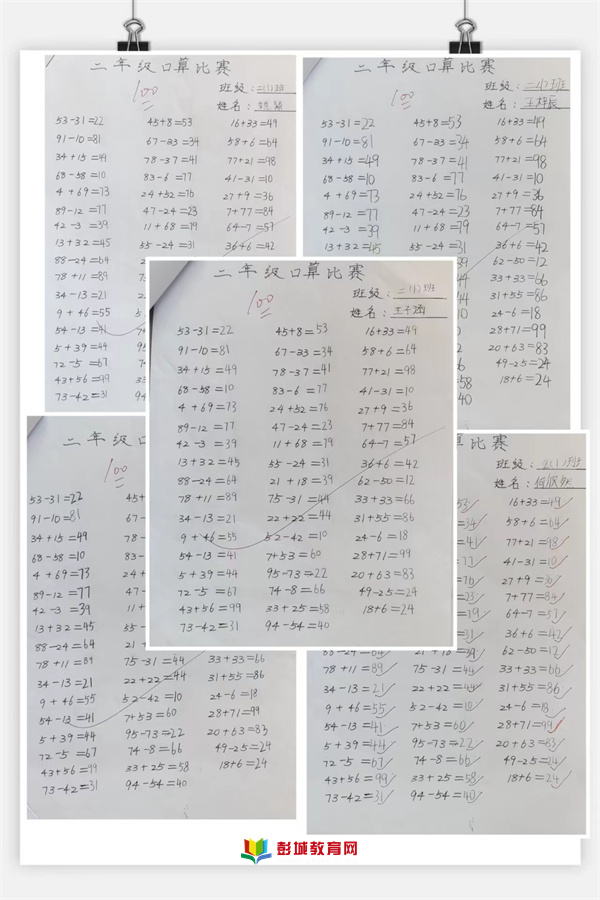 二年级口算比赛
100
班级：二(1)班
姓名：
53-31=22 45+8=53 16+33=49
91-10=81 67-33=34 58+6=64
34+15=49 78-37=41 77+21=98
68-58=10 83-6=77 41-31=10
4+69=73 24+52=76 27+9=36
89-12=77 47-24=23 7+77=84
42-3=39 11+68=79 64-7=57
13+32=45 55-24=31 36+6=42
88-24=64
78+11=89
34-13=21
9+46=55
54-13=41
5+39=44
72-5=67
43+56=99
73-42=31
二年级口算比赛
100
班级：二(1)班
姓名：王梓辰
53-31=22 45+8=53 16+33=49
91-10=81 67-33=34 58+6=64
34+15=49 78-37=41 77+21=98
68-58=10 83-6=77 41-31=10
4+69=73 24+52=76 27+9=36
89-12=77 47-24=23 7+77=84
42-3=39 11+68=79 64-7=57
13+32=45 55-24=31 36+6=42
62-50=12
33+33=66
31+55=86
24-6=18
28+71=99
20+63=83
49-25=24
18+6=24
二年级口算比赛
100
班级：二(1)班
姓名：王子涵
53-31=22 45+8=53 16+33=49
91-10=81 67-33=34 58+6=64
34+15=49 78-37=41 77+21=98
68-58=10 83-6=77 41-31=10
4+69=73 24+52=76 27+9=36
89-12=77 47-24=23 7+77=84
42-3=39 11+68=79 64-7=57
13+32=45 55-24=31 36+6=42
88-24=64 21+18=39 62-50=12
78+11=89 75-31=44 33+33=66
34-13=21 22+22=44 31+55=86
9+46=55 52-42=10 24-6=18
54-13=41 7+53=60 28+71=99
5+39=44 95-73=22 20+63=83
72-5=67 74-8=66 49-25=24
43+56=99 33+25=58 18+6=24
73-42=31 94-54=40
二年级口
100
53-31=22
91-10=81
34+15=49
68-58=10
4+69=73
89-12=77
42-3=39
13+32=45
88-24=64
78+11=89 75-31=44 33+33=66
34-13=21 22+22=44 31+55=86
9+46=55 52-42=10 24-6=18
54-13=41 7+53=60 28+71=99
5+39=44 95-73=22 20+63=83
72-5=67 74-8=66 49-25=24
43+56=99 33+25=58 18+6=24
73-42=31 94-54=40
算比赛
班级：二(1)班
姓名：
16+33=49
58+6=64
77+21=98
41-31=10
27+9=36
7+77=84
64-7=57
36+6=42
88-24=64 21+18=39 62-50=12
78+11=89 75-31=44 33+33=66
34-13=21 22+22=44 31+55=86
9+46=55 52-42=10 24-6=18
54-13=41 7+53=60 28+71=99
5+39=44 95-73=22 20+63=83
72-5=67 74-8=66 49-25=24
43+56=99 33+25=58 18+6=24
73-42=31 94-54=40
彭城教育网